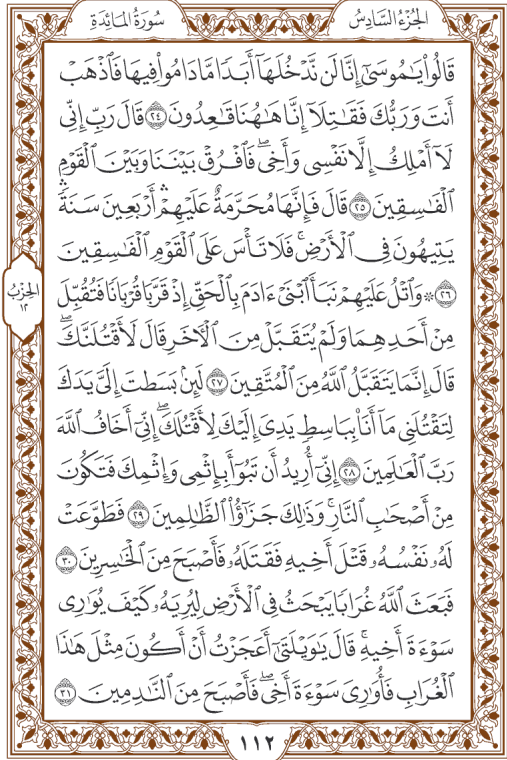 الجُزْءُ السَّادِسُ
سُورَةُ المَائِدَةِ
قَالُواْ يَٰمُوسَىٰٓ إِنَّا لَن نَّدۡخُلَهَآ أَبَدٗا مَّا دَامُواْ فِيهَا فَٱذۡهَبۡ
أَنتَ وَرَبُّكَ فَقَٰتِلَآ إِنَّا هَٰهُنَا قَٰعِدُونَ ٢٤ قَالَ رَبِّ إِنِّي
لَآ أَمۡلِكُ إِلَّا نَفۡسِي وَأَخِيۖ فَٱفۡرُقۡ بَيۡنَنَا وَبَيۡنَ ٱلۡقَوۡمِ
ٱلۡفَٰسِقِينَ ٢٥ قَالَ فَإِنَّهَا مُحَرَّمَةٌ عَلَيۡهِمۡۛ أَرۡبَعِينَ سَنَةٗۛ
يَتِيهُونَ فِي ٱلۡأَرۡضِۚ فَلَا تَأۡسَ عَلَى ٱلۡقَوۡمِ ٱلۡفَٰسِقِينَ
٢٦ ۞ وَٱتۡلُ عَلَيۡهِمۡ نَبَأَ ٱبۡنَيۡ ءَادَمَ بِٱلۡحَقِّ إِذۡ قَرَّبَا قُرۡبَانٗا فَتُقُبِّلَ
مِنۡ أَحَدِهِمَا وَلَمۡ يُتَقَبَّلۡ مِنَ ٱلۡأٓخَرِ قَالَ لَأَقۡتُلَنَّكَۖ
قَالَ إِنَّمَا يَتَقَبَّلُ ٱللَّهُ مِنَ ٱلۡمُتَّقِينَ ٢٧ لَئِنۢ بَسَطتَ إِلَيَّ يَدَكَ
لِتَقۡتُلَنِي مَآ أَنَا۠ بِبَاسِطٖ يَدِيَ إِلَيۡكَ لِأَقۡتُلَكَۖ إِنِّيٓ أَخَافُ ٱللَّهَ
رَبَّ ٱلۡعَٰلَمِينَ ٢٨ إِنِّيٓ أُرِيدُ أَن تَبُوٓأَ بِإِثۡمِي وَإِثۡمِكَ فَتَكُونَ
مِنۡ أَصۡحَٰبِ ٱلنَّارِۚ وَذَٰلِكَ جَزَٰٓؤُاْ ٱلظَّٰلِمِينَ ٢٩ فَطَوَّعَتۡ
لَهُۥ نَفۡسُهُۥ قَتۡلَ أَخِيهِ فَقَتَلَهُۥ فَأَصۡبَحَ مِنَ ٱلۡخَٰسِرِينَ ٣٠
فَبَعَثَ ٱللَّهُ غُرَابٗا يَبۡحَثُ فِي ٱلۡأَرۡضِ لِيُرِيَهُۥ كَيۡفَ يُوَٰرِي
سَوۡءَةَ أَخِيهِۚ قَالَ يَٰوَيۡلَتَىٰٓ أَعَجَزۡتُ أَنۡ أَكُونَ مِثۡلَ هَٰذَا
ٱلۡغُرَابِ فَأُوَٰرِيَ سَوۡءَةَ أَخِيۖ فَأَصۡبَحَ مِنَ ٱلنَّٰدِمِينَ ٣١
الحِزْبُ
١٢
١١٢